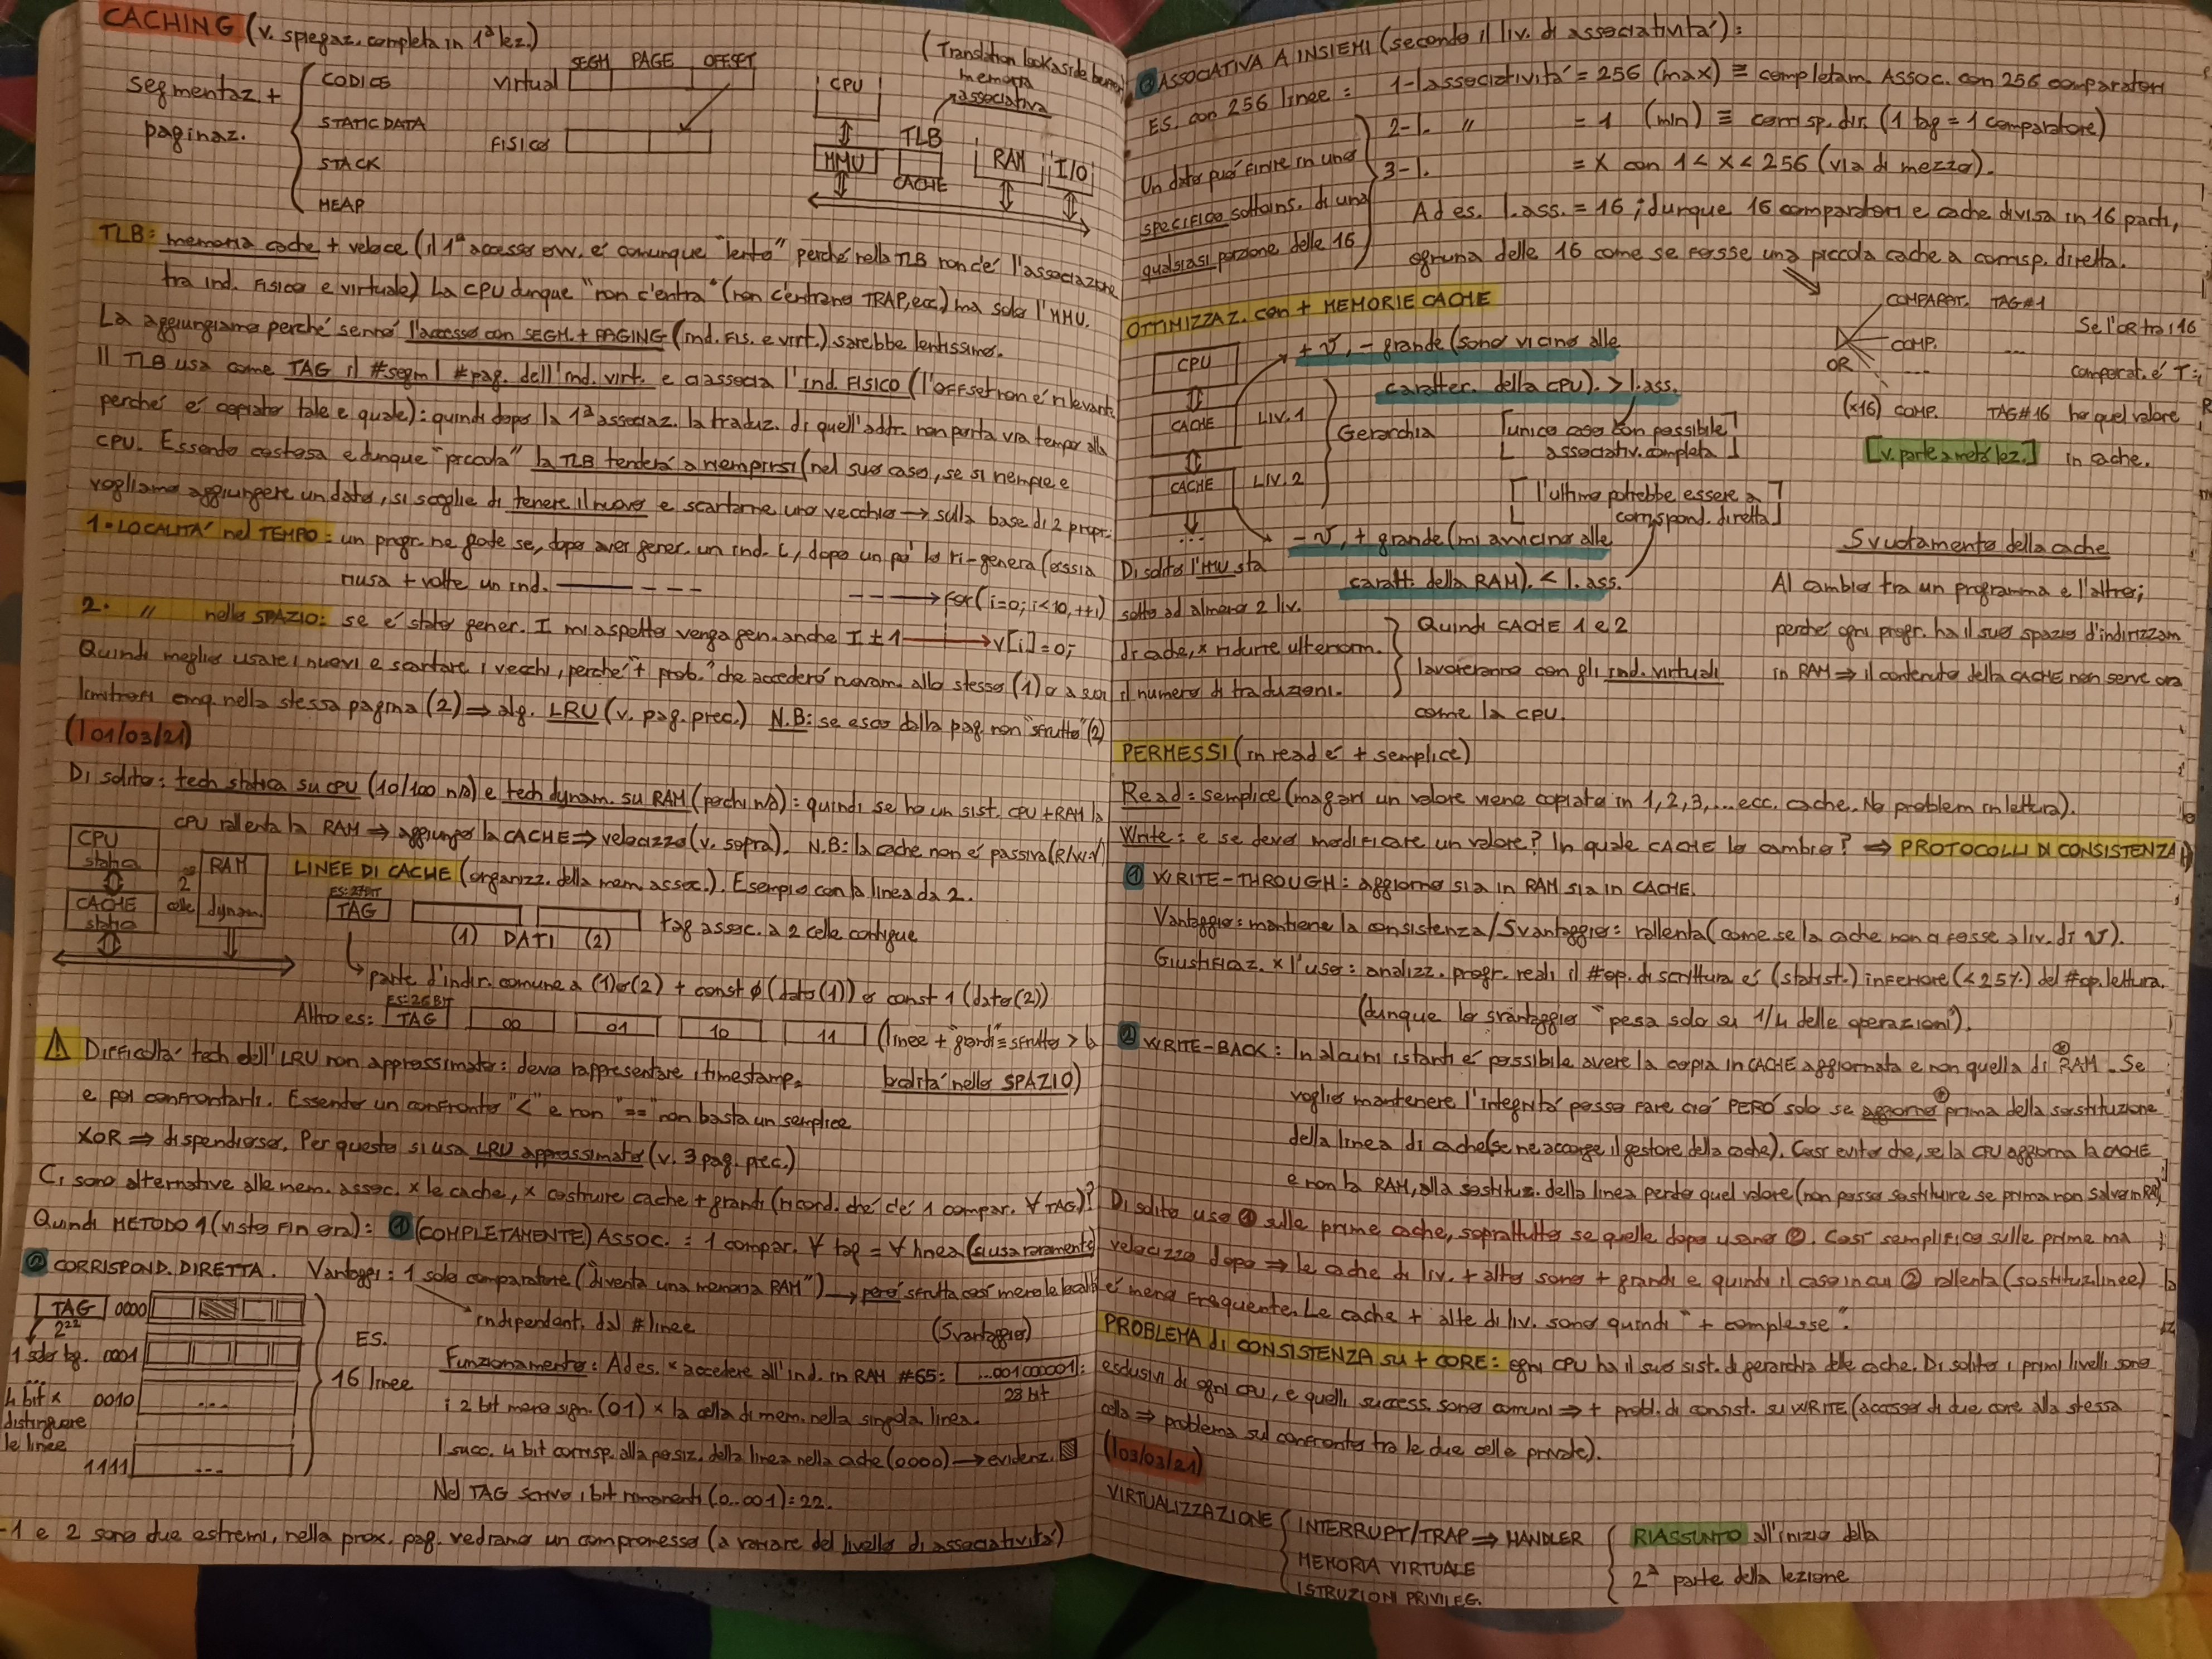 CACHING (v. spiegaz. completa in 1ª lez.)
segmentaz. +
paginaz.
CODICE
STATIC DATA
STACK
HEAP
SEGM PAGE OFFSET
Virtual
FISICO
(Translation lookaside buffer)
memoria
associativa
CPU
TLB
MMU
CACHE
RAM
I/O
TLB: memoria cache + veloce (il 1° accesso ovv. é comunque "lento" perché nella TLB non c'é l'associazione
tra ind. FISICO e virtuale) La CPU dunque "non c'entra" (non c'entrano TRAP, ecc.) ma solo l'MMU.
La aggiungiamo perché sennó l'accesso con SEGM. + PAGING (ind. FIS. e virt.) sarebbe lentissimo.
Il TLB usa come TAG il #segm | #pag. dell'ind. virt. e ci associa l'ind. FISICO (l'OFFSET non é rilevante
perché é copiato tale e quale): quindi dopo la 1ª associaz. la traduz. di quell'addr. non porta via tempo alla
CPU. Essendo costosa e dunque "piccola" la TLB tenderá a riempirsi (nel suo caso, se si riempie e
vogliamo aggiungere un dato, si sceglie di tenere il nuovo e scartarne uno vecchio → sulla base di 2 propr.
1. LOCALITA' nel TEMPO: un progr. ne gode se, dopo aver gener. un ind. i, dopo un po' lo ri-genera (ossia
riusa + volte un ind.
for(i=0; i<10, ++i)
2. " nello SPAZIO: se é stato gener. I mi aspetto venga gen. anche I ± 1 → v[i]=0;
Quindi meglio usare i nuovi e scartare i vecchi, perché "+ prob." che accederó nuovam. allo stesso (1) o a suoi
limitrofi cmq. nella stessa pagina (2) ⇒ alg. LRU (v. pag. prec.) N.B: se esco dalla pag. non "sfrutto" (2)
(101/03/21)
Di solito: tech statica su CPU (10/100 n/s) e tech dynam. su RAM (pochi n/s): quindi se ho un sist. CPU+RAM la
CPU rallenta la RAM ⇒ aggiungo la CACHE ⇒ velocizzo (v. sopra). N.B: la cache non é passiva (R/W: √)
CPU
static
CACHE
static
2
celle
RAM
dynam.
LINEE DI CACHE (organizz. della mem. assoc.). Esempio con la linea da 2.
ES: 27BIT
TAG
(1) DATI (2)
tag assoc. a 2 celle contigue
parte d'indir. comune a (1) o (2) + const 0 (dato (1)) o const 1 (dato (2))
ES: 26 BIT
Altro es: TAG 00 01 10 11 (linee + "grandi" = sfrutto > la
localitá nello SPAZIO)
Difficoltá tech dell'LRU non approssimato: devo rappresentare i timestamp,
e poi confrontarli. Essendo un confronto "<" e non "==" non basta un semplice
XOR ⇒ dispendioso. Per questo si usa LRU approssimato (v. 3 pag. prec.)
Ci sono alternative alle mem. assoc. x le cache, x costruire cache + grandi (ricord. ché c'é 1 compar. ∀ TAG)?
Quindi METODO 1 (visto fin ora): ① (COMPLETAMENTE) ASSOC. = 1 compar. ∀ tag = ∀ linea (si usa raramente)
② CORRISPOND. DIRETTA. Vantaggi: 1 solo comparatore ("diventa una memoria RAM") → peró sfrutta cosí meno le localitá
indipendent. dal #linee
(Svantaggio)
TAG 0000
2²²
1 solo tag. 0001
...
4 bit x 0010 ...
distinguere
le linee
1111 ...
ES.
16 linee
Funzionamento: Ad es. x accedere all'ind. in RAM #65: ...001000001:
28 bit
i 2 bit meno sign. (01) x la cella di mem. nella singola linea.
I succ. 4 bit corrisp. alla posiz. della linea nella cache (0000) → evidenz.
Nel TAG scrivo i bit rimanenti (0..001)=22.
-1 e 2 sono due estremi, nella prox. pag. vedremo un compromesso (a variare del livello di associativitá)
③ ASSOCIATIVA A INSIEMI (secondo il liv. di associativitá):
ES. con 256 linee:
1-l associativitá = 256 (max) ≡ completam. Assoc. con 256 comparatori
2-l. " = 1 (min) ≡ corrisp. dir. (1 tag = 1 comparatore)
3-l. = X con 1 < X < 256 (via di mezzo).
Un dato puó finire in uno
specifico sottoins. di una
qualsiasi porzione delle 16
Ad es. l. ass. = 16; dunque 16 comparatori e cache divisa in 16 parti,
ognuna delle 16 come se fosse una piccola cache a corrisp. diretta.
OTTIMIZZAZ. con + MEMORIE CACHE
CPU
CACHE LIV. 1
CACHE LIV. 2
...
Gerarchia
+ v, - grande (sono vicino alle
caratter. della CPU). > l. ass.
[unico caso con possibile
associativ. completa]
[l'ultimo potrebbe essere a
corrispond. diretta]
- v, + grande (mi avvicino alle
caratt. della RAM). < l. ass.
COMPARAT. TAG#1
COMP. ...
OR ...
(x16) COMP. TAG#16
Se l'OR tra i 16
comparat. é T
ho quel valore
in cache.
[v. parte a metá lez.]
Di solito l'MMU sta
sotto ad almeno 2 liv.
di cache, x ridurre ulteriorm.
il numero di traduzioni.
Quindi CACHE 1 e 2
lavoreranno con gli ind. virtuali
come la CPU.
Svuotamento della cache
Al cambio tra un programma e l'altro;
perché ogni progr. ha il suo spazio d'indirizzam
in RAM ⇒ il contenuto della CACHE non serve ora
PERMESSI (in read é + semplice)
Read: semplice (magari un valore viene copiato in 1, 2, 3, ... ecc. cache. No problem in lettura).
Write: e se devo modificare un valore? In quale CACHE lo cambio? ⇒ PROTOCOLLI DI CONSISTENZA
① WRITE-THROUGH: aggiorno sia in RAM sia in CACHE.
Vantaggio: mantiene la consistenza/Svantaggio: rallenta (come se la cache non ci fosse a liv. di v).
Giustificaz. x l'uso: analizz. progr. reali il #op. di scrittura é (statist.) inferiore (<25%) del #op. lettura.
(dunque lo svantaggio "pesa solo su 1/4 delle operazioni").
② WRITE-BACK: In alcuni istanti é possibile avere la copia in CACHE aggiornata e non quella di RAM. Se
voglio mantenere l'integritá posso fare ció PERÓ solo se aggiorno prima della sostituzione
della linea di cache (se ne accorge il gestore della cache). Cosí evito che, se la CPU aggiorna la CACHE
e non la RAM, alla sostituz. della linea perdo quel valore (non posso sostituire se prima non salvo in RAM)
Di solito uso ① sulle prime cache, soprattutto se quelle dopo usano ②. Cosí semplifico sulle prime ma
velocizzo dopo ⇒ le cache di liv. + alto sono + grandi e quindi il caso in cui ② rallenta (sostituz. linee)
é meno frequente. Le cache + alte di liv. sono quindi "+ complesse".
PROBLEMA di CONSISTENZA su + CORE: ogni CPU ha il suo sist. di gerarchia delle cache. Di solito i primi livelli sono
esclusivi di ogni CPU, e quelli success. sono comuni ⇒ + probl. di consist. su WRITE (accesso di due core alla stessa
cella ⇒ problema sul confronto tra le due celle private).
(103/03/21)
VIRTUALIZZAZIONE
INTERRUPT/TRAP ⇒ HANDLER
MEMORIA VIRTUALE
ISTRUZIONI PRIVILEG.
RIASSUNTO all'inizio della
2ª parte della lezione